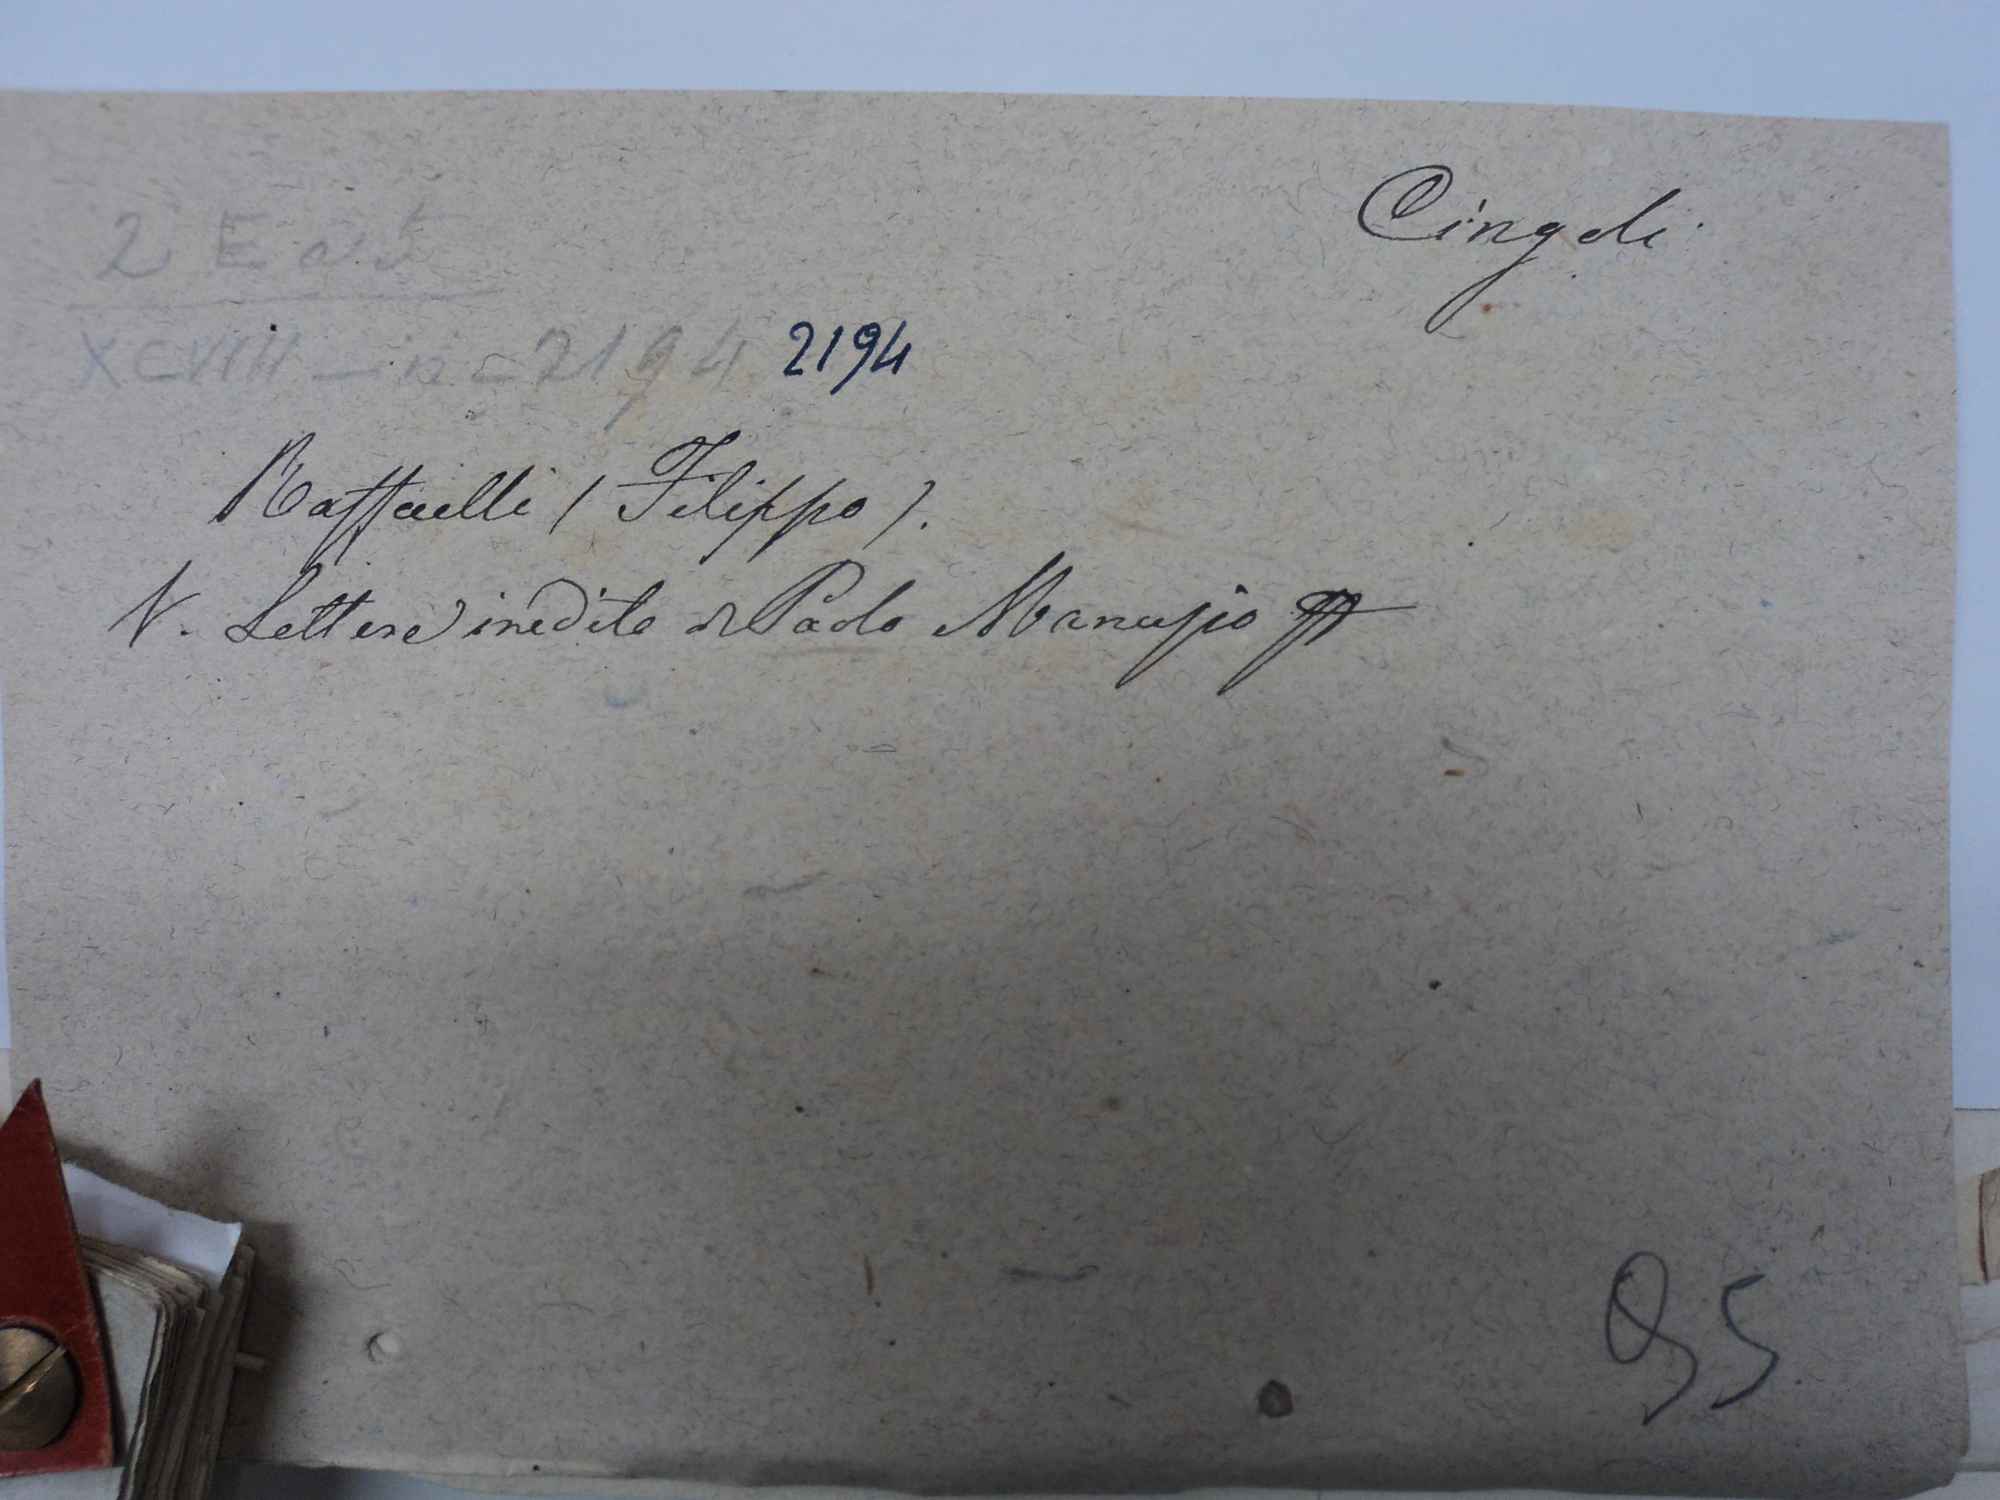 Cingoli
2 E a 5
XCVIII - n - 2194 2194
Raffaelli (Filippo).
V. Lettere inedite di Paolo Manuzio
95